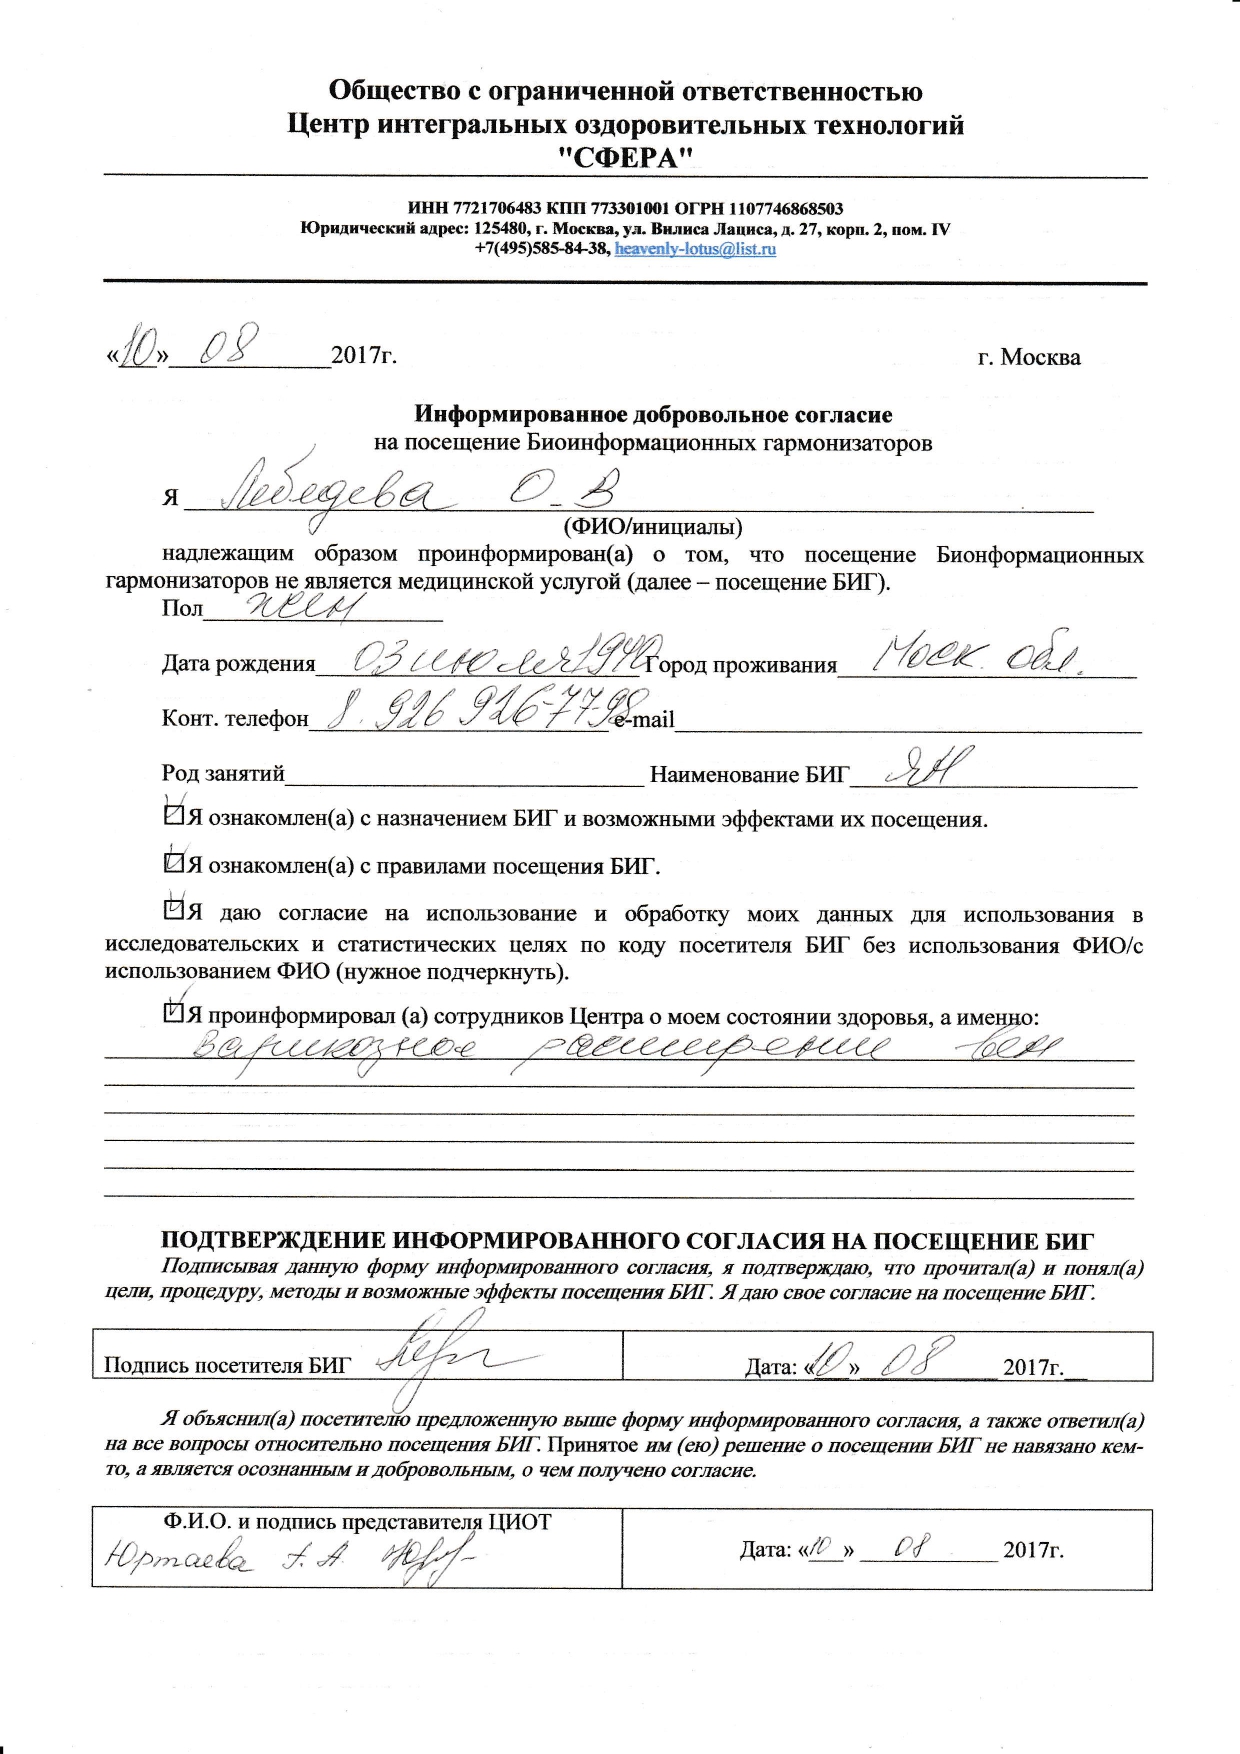 Общество с ограниченной ответственностью
Центр интегральных оздоровительных технологий
"СФЕРА"
ИНН 7721706483 КПП 773301001 ОГРН 1107746868503
Юридический адрес: 125480, г. Москва, ул. Вилиса Лациса, д. 27, корп. 2, пом. IV
+7(495)585-84-38, heavenly-lotus@list.ru
«10» 08 2017г. г. Москва
Информированное добровольное согласие
на посещение Биоинформационных гармонизаторов
Я Лебедева О_В
(ФИО/инициалы)
надлежащим образом проинформирован(а) о том, что посещение Бионформационных
гармонизаторов не является медицинской услугой (далее – посещение БИГ).
Пол жен
Дата рождения 03 июля 1940 Город проживания Моск. обл.
Конт. телефон 8. 926 926-77-98 e-mail
Род занятий Наименование БИГ ЯН
Я ознакомлен(а) с назначением БИГ и возможными эффектами их посещения.
Я ознакомлен(а) с правилами посещения БИГ.
Я даю согласие на использование и обработку моих данных для использования в
исследовательских и статистических целях по коду посетителя БИГ без использования ФИО/с
использованием ФИО (нужное подчеркнуть).
Я проинформировал (а) сотрудников Центра о моем состоянии здоровья, а именно:
варикозное расширение вен
ПОДТВЕРЖДЕНИЕ ИНФОРМИРОВАННОГО СОГЛАСИЯ НА ПОСЕЩЕНИЕ БИГ
Подписывая данную форму информированного согласия, я подтверждаю, что прочитал(а) и понял(а)
цели, процедуру, методы и возможные эффекты посещения БИГ. Я даю свое согласие на посещение БИГ.
Подпись посетителя БИГ Дата: «10» 08 2017г.
Я объяснил(а) посетителю предложенную выше форму информированного согласия, а также ответил(а)
на все вопросы относительно посещения БИГ. Принятое им (ею) решение о посещении БИГ не навязано кем-
то, а является осознанным и добровольным, о чем получено согласие.
Ф.И.О. и подпись представителя ЦИОТ
Юртаева Г. А. Дата: «10» 08 2017г.